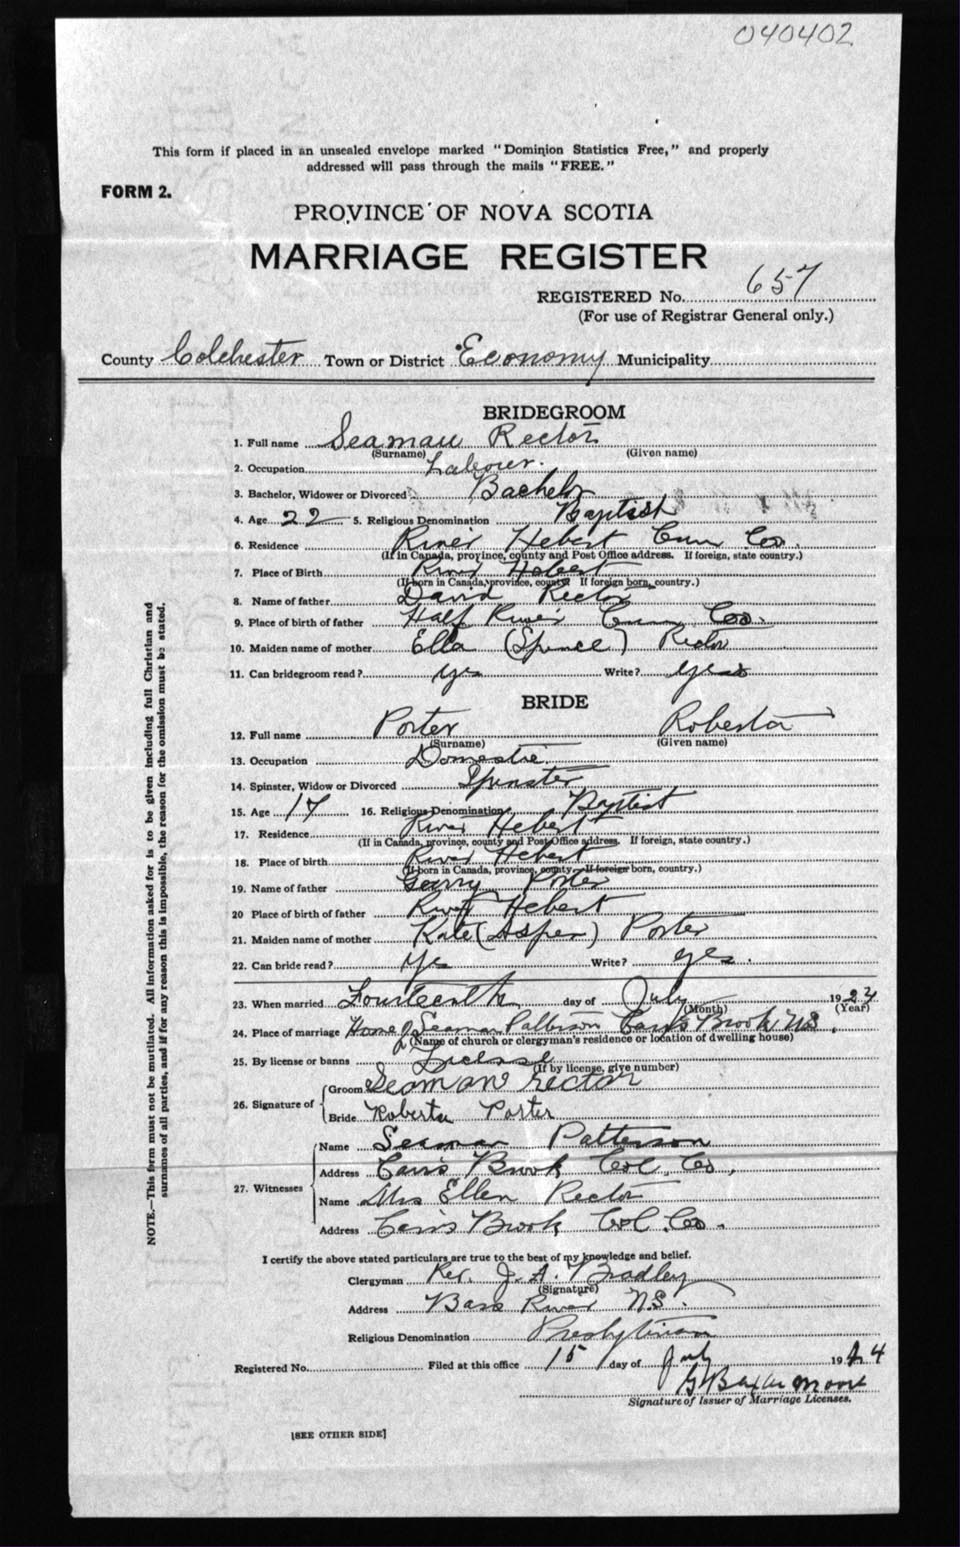 040402
This form if placed in an unsealed envelope marked "Dominion Statistics Free," and properly
addressed will pass through the mails "FREE."
FORM 2.
PROVINCE OF NOVA SCOTIA
MARRIAGE REGISTER
REGISTERED No. 657
(For use of Registrar General only.)
County Colchester Town or District Economy Municipality
BRIDEGROOM
1. Full name Seaman Rector
(Surname) (Given name)
2. Occupation Labourer.
3. Bachelor, Widower or Divorced Bachelor
4. Age 22 5. Religious Denomination Baptist
6. Residence River Hebert Cum Co.
(If in Canada, province, county and Post Office address. If foreign, state country.)
7. Place of Birth River Hebert
(If born in Canada, province, county If foreign born, country.)
8. Name of father David Rector
9. Place of birth of father Half River Cum Co.
10. Maiden name of mother Ella (Spence) Rector
11. Can bridegroom read? yes Write? yes
BRIDE
12. Full name Porter Roberta
(Surname) (Given name)
13. Occupation Domestic
14. Spinster, Widow or Divorced Spinster
15. Age 17 16. Religious Denomination Baptist
17. Residence River Hebert
(If in Canada, province, county and Post Office address. If foreign, state country.)
18. Place of birth River Hebert
(If born in Canada, province, county If foreign born, country.)
19. Name of father Porter
20 Place of birth of father River Hebert
21. Maiden name of mother Kate ( ) Porter
22. Can bride read? Yes Write? yes.
23. When married Fourteenth day of July 1924
(Month) (Year)
24. Place of marriage Home of Seaman Patterson Carrs Brook N.S.
(Name of church or clergyman's residence or location of dwelling house)
25. By license or banns License
(If by license, give number)
26. Signature of Groom Seaman Rector
Bride Roberta Porter
27. Witnesses Name Seaman Patterson
Address Carrs Brook Col. Co.
Name Mrs Ellen Rector
Address Carrs Brook Col. Co.
I certify the above stated particulars are true to the best of my knowledge and belief.
Clergyman Rev. J. A. Bradley
(Signature)
Address Bass River N.S.
Religious Denomination Presbyterian
Registered No. Filed at this office 15 day of July 1924
G Baxter Moore
Signature of Issuer of Marriage Licenses.
[SEE OTHER SIDE]
NOTE.—This form must not be mutilated. All information asked for is to be given including full Christian and
surnames of all parties, and if for any reason this is impossible, the reason for the omission must be stated.